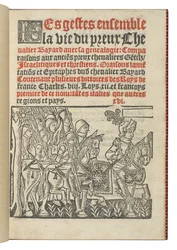 LEs gestes ensemble
la vie du preux Che
ualier Bayard auec sa genealogie: Compa
raisons aux anciẽs preux cheualiers: Gẽtilz
Israelitiques et chrestiens. Oraisons lamẽ
tatiõs et Epitaphes dud cheualier Bayard
Contenant plusieurs histoires des Roys de
france Charles. viij. Loys. xii. et francoys
premier de ce nom
que autres
re gions et pays.